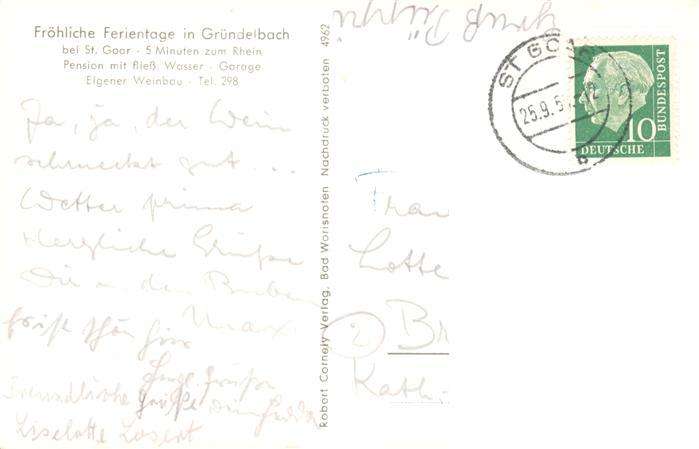 Fröhliche Ferientage in Gründelbach
bei St. Goar · 5 Minuten zum Rhein
Pension mit fließ. Wasser · Garage
Eigener Weinbau · Tel. 298
Ja, ja, der Wein
schmeckt gut...
Wetter prima
Herzliche Grüße
Dir u. den Buben
Max
Freundliche Grüße
Liselotte Losert
Robert Cornely Verlag, Bad Worisnoten Nachdruck verboten 4962
ST GOAR
25.9.5
10
DEUTSCHE
BUNDESPOST
Frau
Lotte
Br
Kath